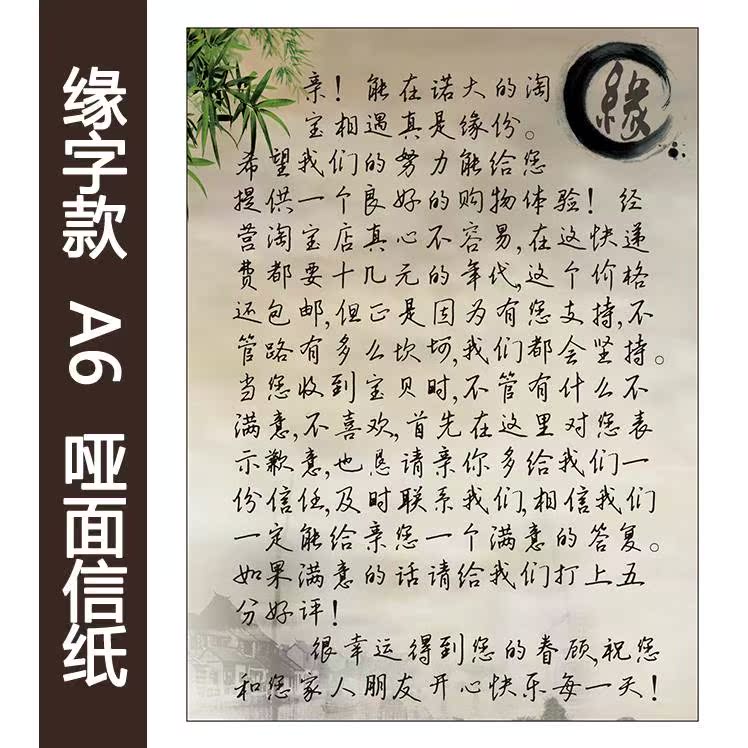 缘字款 A6 哑面信纸
緣
亲！能在诺大的淘
宝相遇真是缘份。
希望我们的努力能给您
提供一个良好的购物体验！经
营淘宝店真心不容易,在这快递
费都要十几元的年代,这个价格
还包邮,但正是因为有您支持,不
管路有多么坎坷,我们都会坚持。
当您收到宝贝时,不管有什么不
满意,不喜欢,首先在这里对您表
示歉意,也恳请亲你多给我们一
份信任,及时联系我们,相信我们
一定能给亲您一个满意的答复。
如果满意的话请给我们打上五
分好评！
很幸运得到您的眷顾,祝您
和您家人朋友开心快乐每一天！